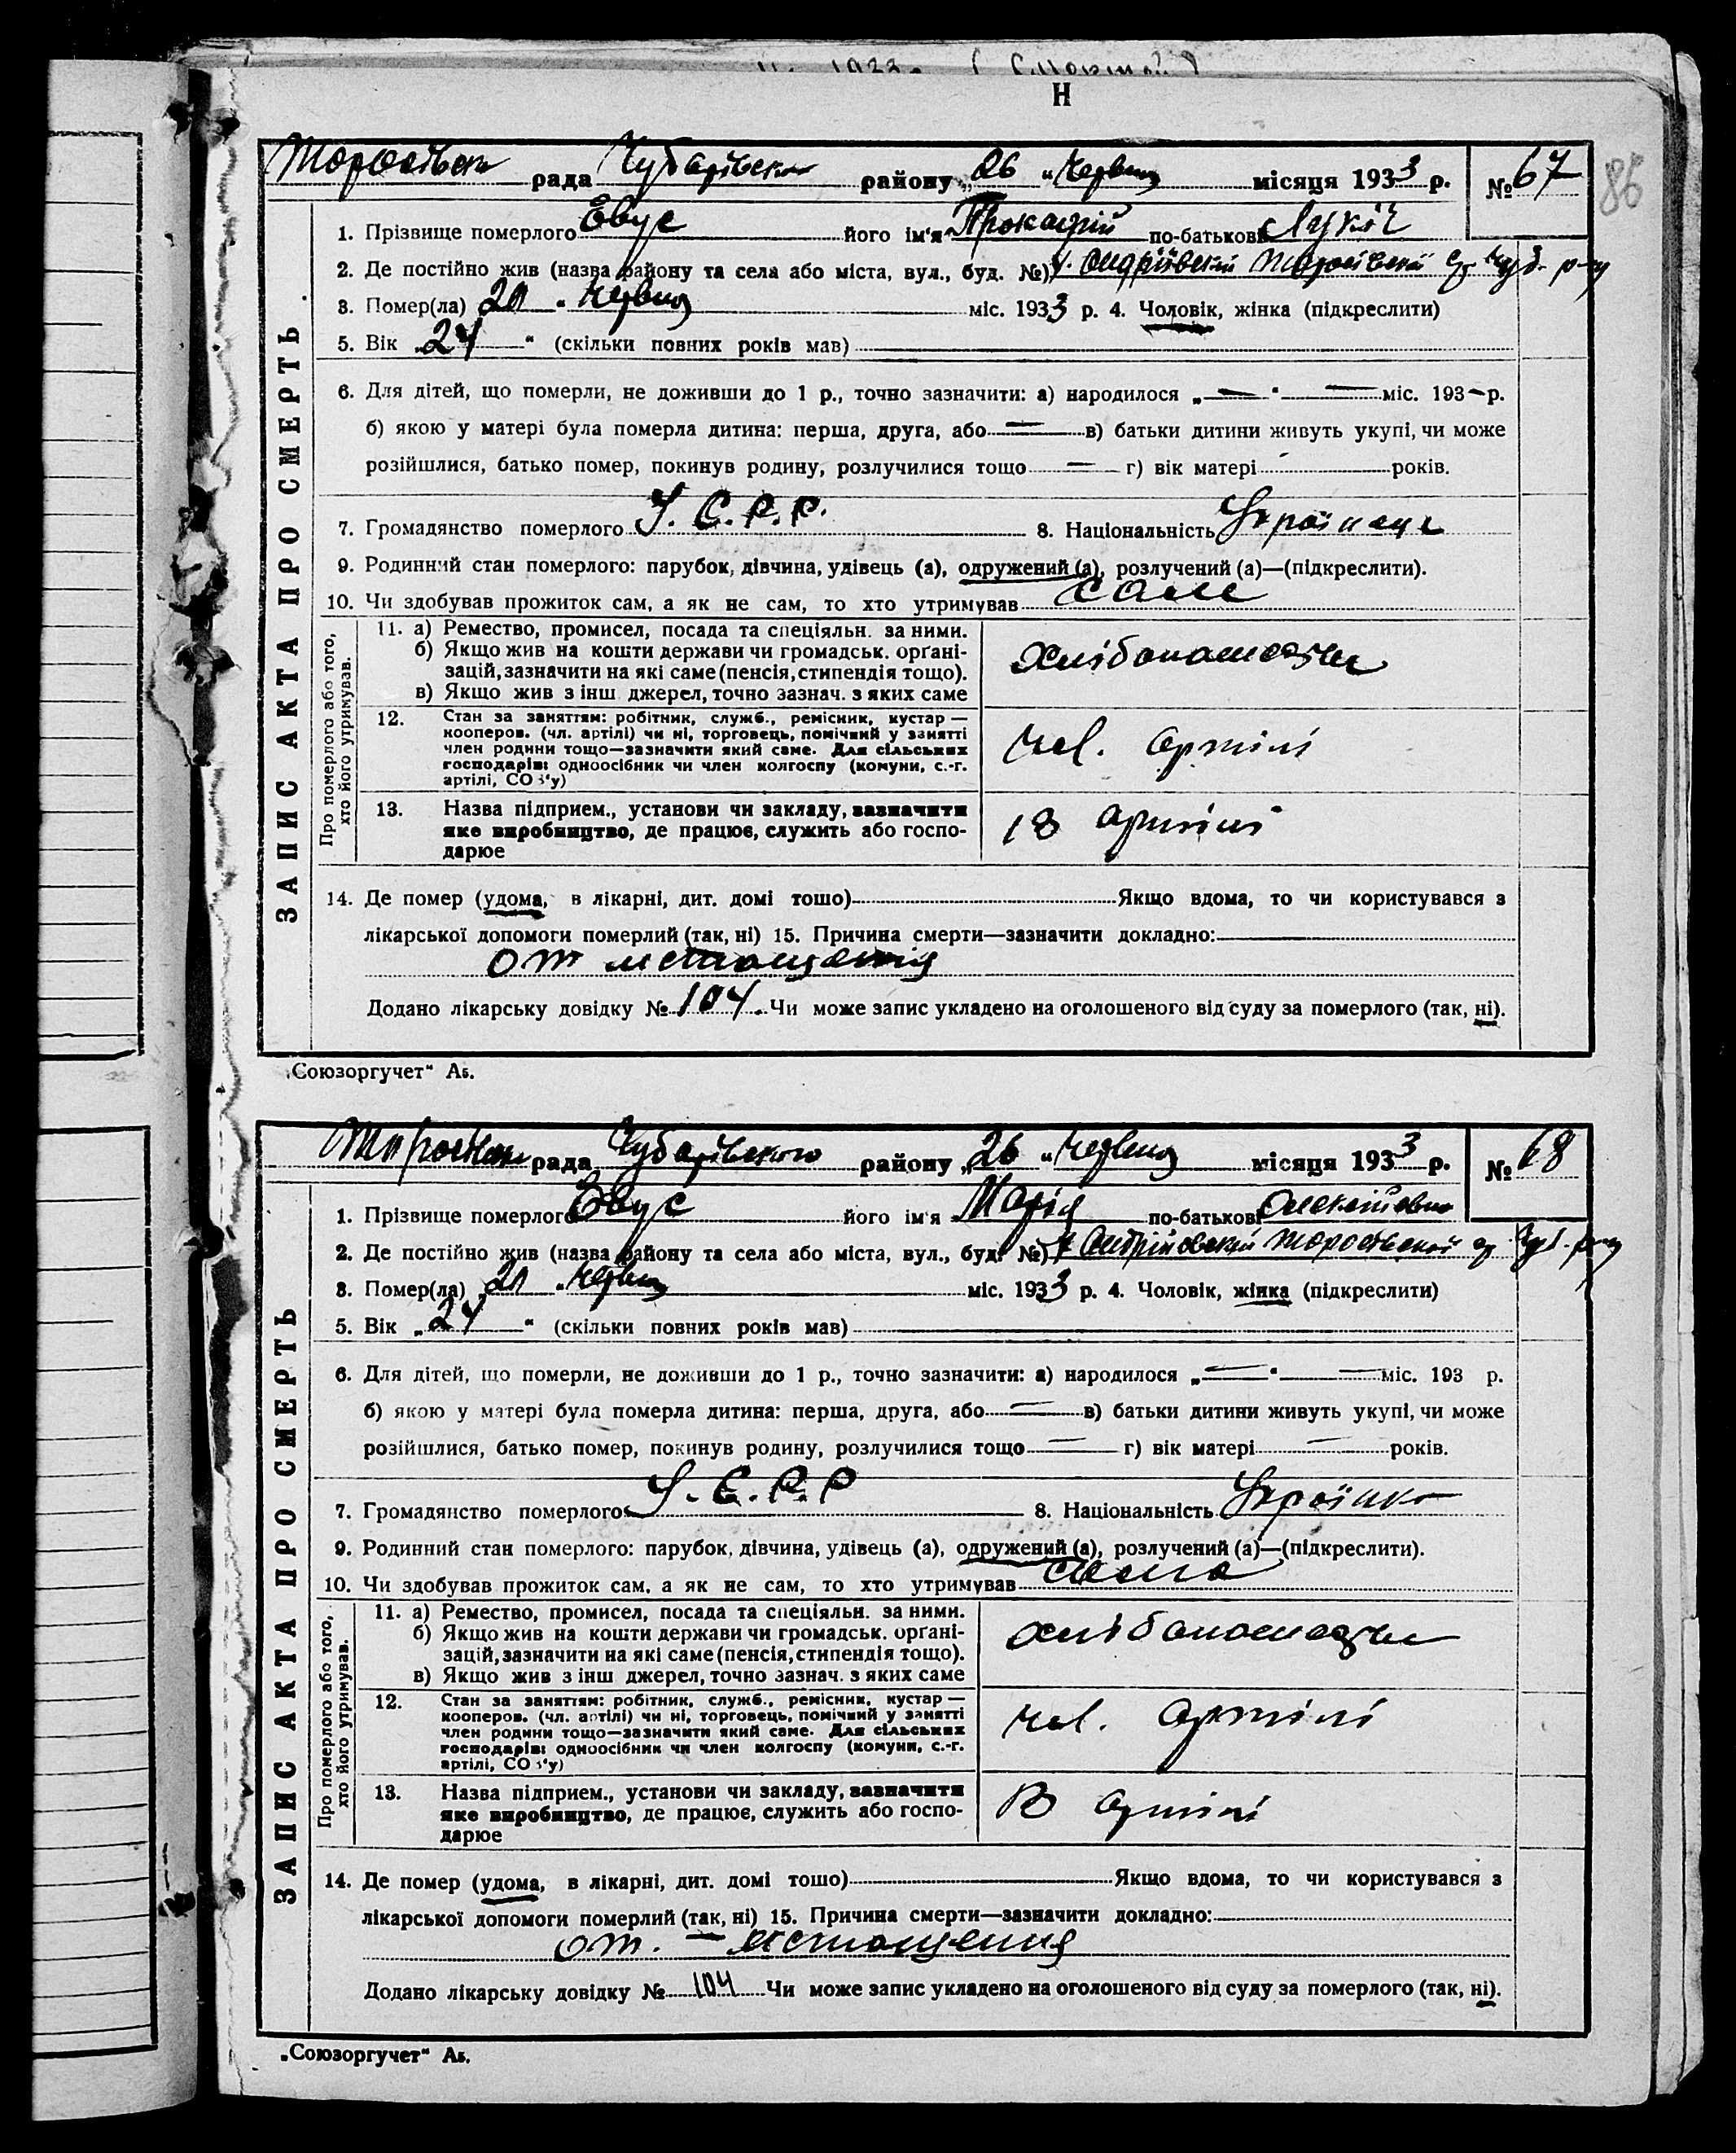 Н
рада Чубарівськ району „26 “ червня місяця 1933 р. № 67
86
ЗАПИС АКТА ПРО СМЕРТЬ
1. Прізвище померлого Євус його ім'я по-батькові Лукіч
2. Де постійно жив (назва району та села або міста, вул., буд. №)
3. Помер(ла) „ “ червня міс. 1933 р. 4. Чоловік, жінка (підкреслити)
5. Вік „24 “ (скільки повних років мав)
6. Для дітей, що померли, не доживши до 1 р., точно зазначити: а) народилося „— “ — міс. 193— р.
б) якою у матері була померла дитина: перша, друга, або — в) батьки дитини живуть укупі, чи може
розійшлися, батько помер, покинув родину, розлучилися тощо — г) вік матері років.
7. Громадянство померлого У.С.Р.Р. 8. Національність Українець
9. Родинний стан померлого: парубок, дівчина, удівець (а), одружений (а), розлучений (а)—(підкреслити).
10. Чи здобував прожиток сам, а як не сам, то хто утримував сам
Про померлого або того,
хто його утримував.
11. а) Ремество, промисел, посада та спеціяльн. за ними.
б) Якщо жив на кошти держави чи громадськ. орґані-
зацій, зазначити на які саме (пенсія, стипендія тощо).
в) Якщо жив з інш джерел, точно зазнач. з яких саме
12. Стан за заняттям: робітник, служб., ремісник, кустар —
кооперов. (чл. артілі) чи ні, торговець, помічний у занятті
член родини тощо—зазначити який саме. Для сільських
господарів: одноосібник чи член колгоспу (комуни, с.-г.
артілі, СОЗ'у)
чл. артілі
13. Назва підприєм., установи чи закладу, зазначити
яке виробництво, де працює, служить або госпо-
дарює
В артілі
14. Де помер (удома, в лікарні, дит. домі тошо) Якщо вдома, то чи користувався з
лікарської допомоги померлий (так, ні) 15. Причина смерти—зазначити докладно:
от истощения
Додано лікарську довідку № 104. Чи може запис укладено на оголошеного від суду за померлого (так, ні).
„Союзоргучет“ А5.
рада Чубарівського району „26 “ червня місяця 1933 р. № 68
ЗАПИС АКТА ПРО СМЕРТЬ
1. Прізвище померлого Євус його ім'я Марія по-батькові Олексіївна
2. Де постійно жив (назва району та села або міста, вул., буд. №)
3. Помер(ла) „ “ червня міс. 1933 р. 4. Чоловік, жінка (підкреслити)
5. Вік „24 “ (скільки повних років мав)
6. Для дітей, що померли, не доживши до 1 р., точно зазначити: а) народилося „— “ — міс. 193 р.
б) якою у матері була померла дитина: перша, друга, або — в) батьки дитини живуть укупі, чи може
розійшлися, батько помер, покинув родину, розлучилися тощо — г) вік матері — років.
7. Громадянство померлого У.С.Р.Р 8. Національність Українка
9. Родинний стан померлого: парубок, дівчина, удівець (а), одружений (а), розлучений (а)—(підкреслити).
10. Чи здобував прожиток сам, а як не сам, то хто утримував сама
Про померлого або того,
хто його утримував.
11. а) Ремество, промисел, посада та спеціяльн. за ними.
б) Якщо жив на кошти держави чи громадськ. орґані-
зацій, зазначити на які саме (пенсія, стипендія тощо).
в) Якщо жив з інш джерел, точно зазнач. з яких саме
12. Стан за заняттям: робітник, служб., ремісник, кустар —
кооперов. (чл. артілі) чи ні, торговець, помічний у занятті
член родини тощо—зазначити який саме. Для сільських
господарів: одноосібник чи член колгоспу (комуни, с.-г.
артілі, СОЗ'у)
чл. артілі
13. Назва підприєм., установи чи закладу, зазначити
яке виробництво, де працює, служить або госпо-
дарює
В артілі
14. Де помер (удома, в лікарні, дит. домі тошо) Якщо вдома, то чи користувався з
лікарської допомоги померлий (так, ні) 15. Причина смерти—зазначити докладно:
от. истощения
Додано лікарську довідку № 104 Чи може запис укладено на оголошеного від суду за померлого (так, ні).
„Союзоргучет“ А5.